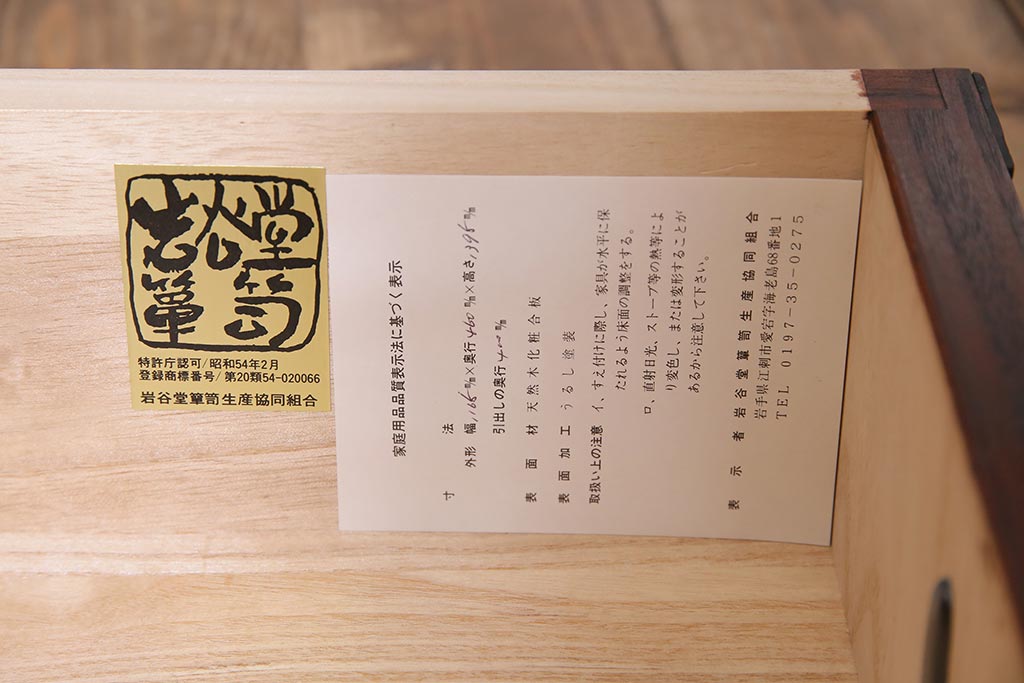 岩谷堂箪笥
特許庁認可/昭和54年2月
登録商標番号/第20類54-020066
岩谷堂簞笥生産協同組合
家庭用品品質表示法に基づく表示
寸法
外形 幅1,165m/m×奥行460m/m×高さ1,395m/m
引出しの奥行400m/m
表面材 天然木化粧合板
表面加工 うるし塗装
取扱い上の注意 イ、すえ付けに際し、家具が水平に保
たれるよう床面の調整をする。
ロ、直射日光、ストーブ等の熱等によ
り変色し、または変形することが
あるから注意して下さい。
表示者 岩谷堂簞笥生産協同組合
岩手県江刺市愛宕字海老島68番地1
TEL 0197-35-0275